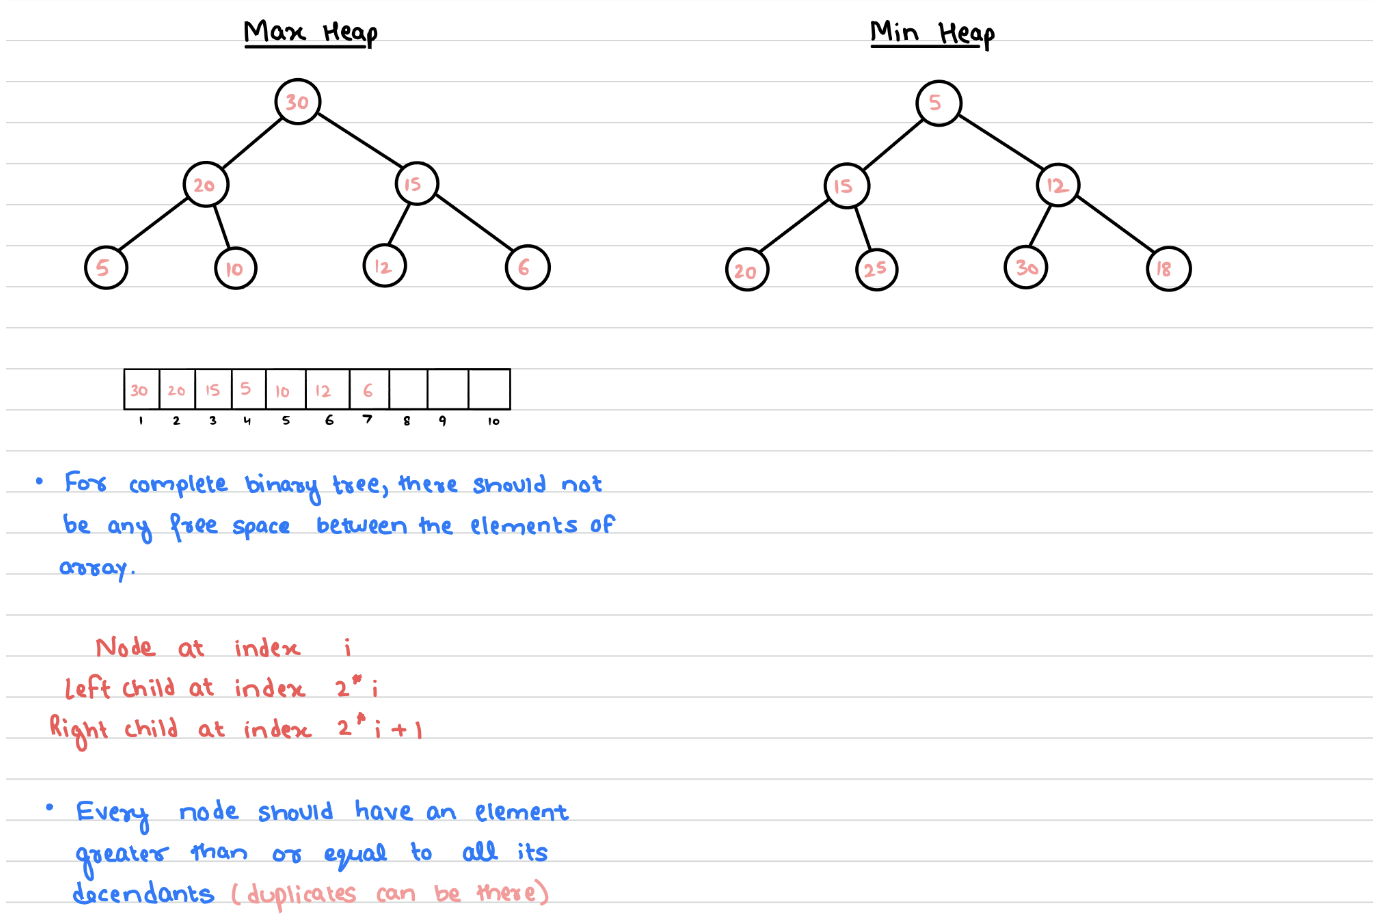 Max Heap
30
20 15
5 10 12 6
Min Heap
5
15 12
20 25 30 18
30 20 15 5 10 12 6
1 2 3 4 5 6 7 8 9 10
• For complete binary tree, there should not
be any free space between the elements of
array.
Node at index i
Left child at index 2*i
Right child at index 2*i+1
• Every node should have an element
greater than or equal to all its
decendants (duplicates can be there)